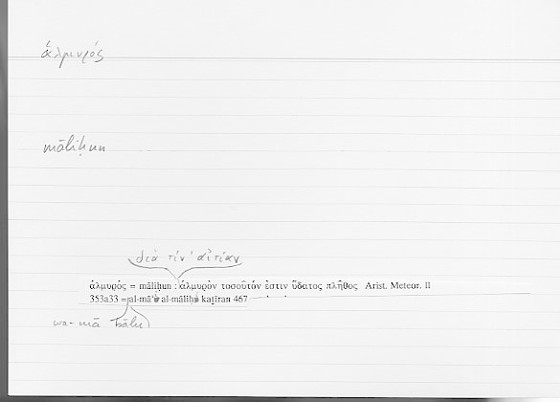 ἁλμυρός
māliḥun
διὰ τίν' αἰτίαν
ἁλμυρός = māliḥun : ἁλμυρὸν τοσοῦτόν ἐστιν ὕδατος πλῆθος Arist. Meteor. II
353a33 = al-mā'u al-māliḥu kaṯīran 467
wa-mā bālu